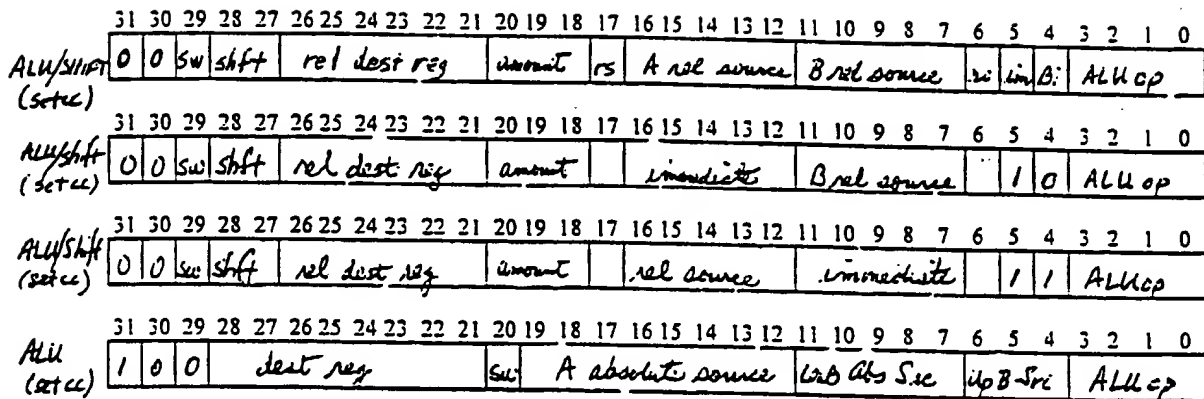 31 30 29 28 27 26 25 24 23 22 21 20 19 18 17 16 15 14 13 12 11 10 9 8 7 6 5 4 3 2 1 0
ALU/SHIFT 0 0 sw shft rel dest reg amount rs A rel source B rel source im Bi ALU op
(setcc)
31 30 29 28 27 26 25 24 23 22 21 20 19 18 17 16 15 14 13 12 11 10 9 8 7 6 5 4 3 2 1 0
ALU/shft 0 0 sw shft rel dest reg amount immediate B rel source 1 0 ALU op
(setcc)
31 30 29 28 27 26 25 24 23 22 21 20 19 18 17 16 15 14 13 12 11 10 9 8 7 6 5 4 3 2 1 0
ALU/Shift 0 0 sw shft rel dest reg amount rel source immediate 1 1 ALU op
(setcc)
31 30 29 28 27 26 25 24 23 22 21 20 19 18 17 16 15 14 13 12 11 10 9 8 7 6 5 4 3 2 1 0
ALU 1 0 0 dest reg sw A absolute source Abs Src B-Sri ALU op
(setcc)